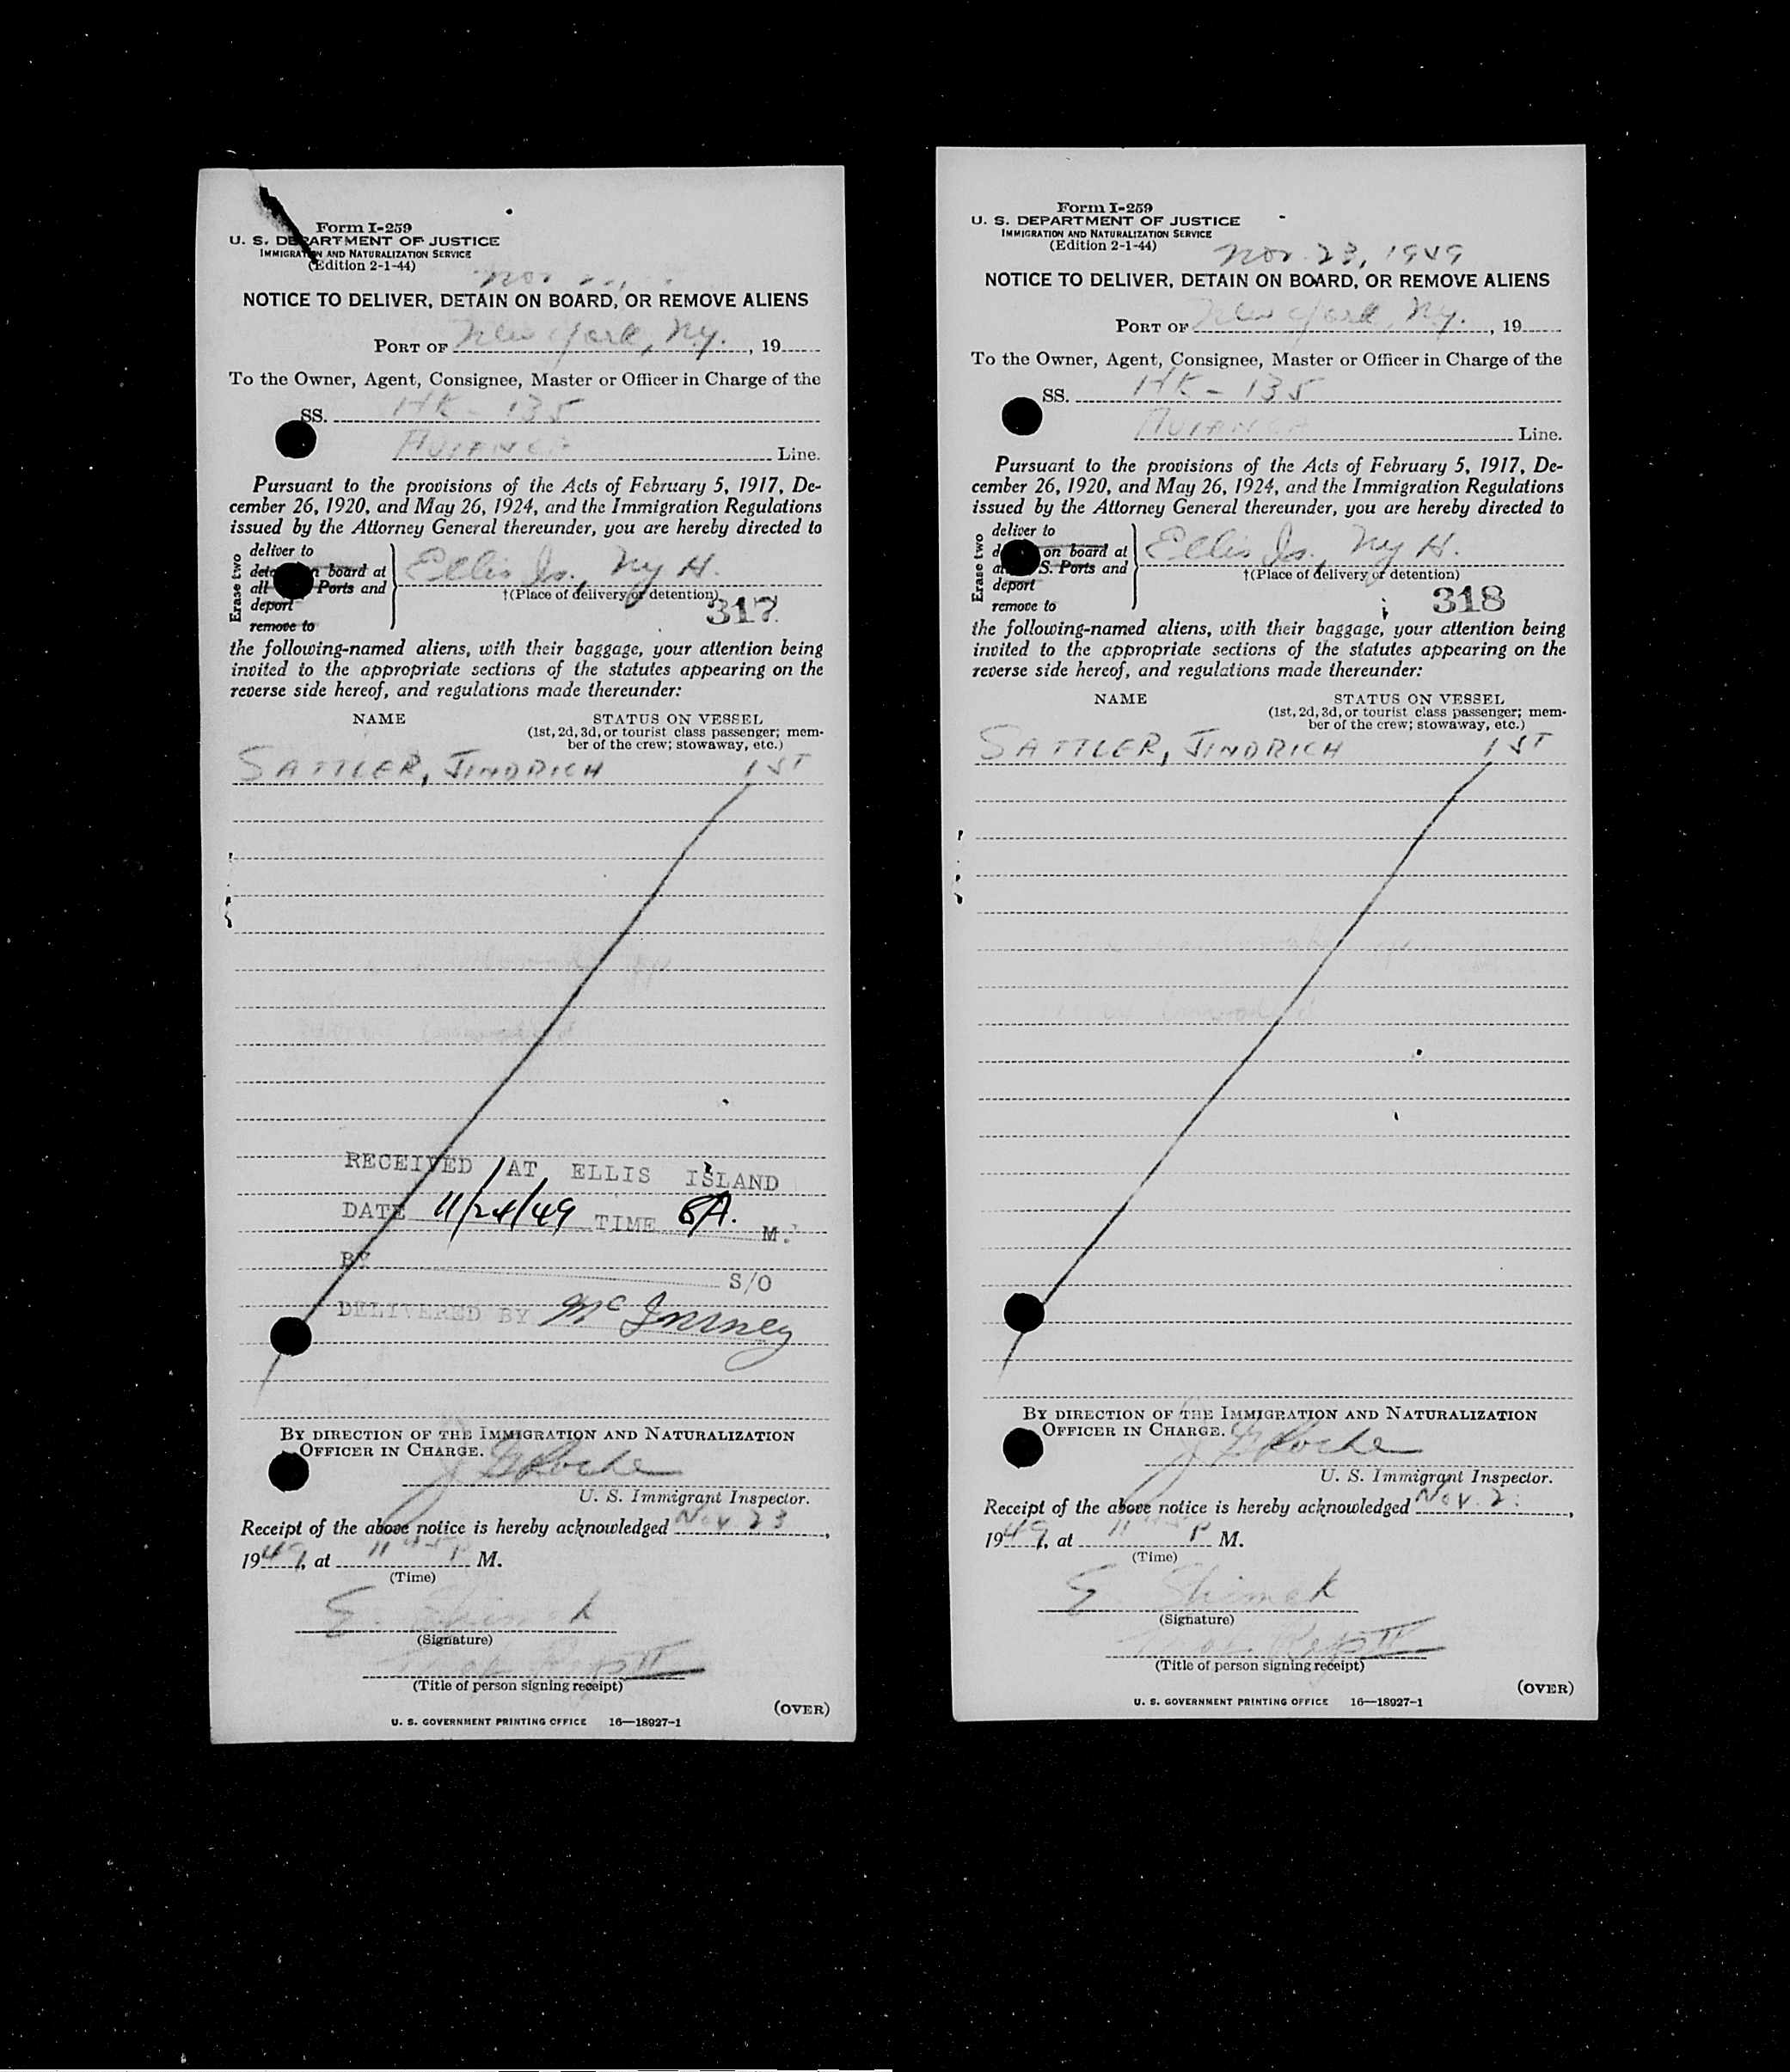 Form I-259
U. S. DEPARTMENT OF JUSTICE
IMMIGRATION AND NATURALIZATION SERVICE
(Edition 2-1-44)
Nov
NOTICE TO DELIVER, DETAIN ON BOARD, OR REMOVE ALIENS
PORT OF New York, N.Y., 19
To the Owner, Agent, Consignee, Master or Officer in Charge of the
SS. HK-135
AVIANCA Line.
Pursuant to the provisions of the Acts of February 5, 1917, De-
cember 26, 1920, and May 26, 1924, and the Immigration Regulations
issued by the Attorney General thereunder, you are hereby directed to
Erase two
deliver to
board at
all Ports and
deport
remove to
Ellis Is., NY H.
†(Place of delivery or detention)
317
the following-named aliens, with their baggage, your attention being
invited to the appropriate sections of the statutes appearing on the
reverse side hereof, and regulations made thereunder:
NAME STATUS ON VESSEL
(1st, 2d, 3d, or tourist class passenger; mem-
ber of the crew; stowaway, etc.)
SATTLER, JINDRICH 1ST
RECEIVED AT ELLIS ISLAND
DATE 11/24/49 TIME 8A. M.
BY S/O
DELIVERED BY McInerney
BY DIRECTION OF THE IMMIGRATION AND NATURALIZATION
OFFICER IN CHARGE.
J Roche
U. S. Immigrant Inspector.
Receipt of the above notice is hereby acknowledged Nov. 23,
1949, at 11 45 P M.
(Time)
E. Shimek
(Signature)
Rep II
(Title of person signing receipt)
(OVER)
U. S. GOVERNMENT PRINTING OFFICE 16—18927-1
Form I-259
U. S. DEPARTMENT OF JUSTICE
IMMIGRATION AND NATURALIZATION SERVICE
(Edition 2-1-44)
Nov. 23, 1949
NOTICE TO DELIVER, DETAIN ON BOARD, OR REMOVE ALIENS
PORT OF New York, N.Y., 19
To the Owner, Agent, Consignee, Master or Officer in Charge of the
SS. HK-135
AVIANCA Line.
Pursuant to the provisions of the Acts of February 5, 1917, De-
cember 26, 1920, and May 26, 1924, and the Immigration Regulations
issued by the Attorney General thereunder, you are hereby directed to
Erase two
deliver to
on board at
S. Ports and
deport
remove to
Ellis Is., NY H.
†(Place of delivery or detention)
318
the following-named aliens, with their baggage, your attention being
invited to the appropriate sections of the statutes appearing on the
reverse side hereof, and regulations made thereunder:
NAME STATUS ON VESSEL
(1st, 2d, 3d, or tourist class passenger; mem-
ber of the crew; stowaway, etc.)
SATTLER, JINDRICH 1ST
BY DIRECTION OF THE IMMIGRATION AND NATURALIZATION
OFFICER IN CHARGE.
J Roche
U. S. Immigrant Inspector.
Receipt of the above notice is hereby acknowledged Nov. 2,
1949, at 11 45 P M.
(Time)
E Shimek
(Signature)
Rep II
(Title of person signing receipt)
(OVER)
U. S. GOVERNMENT PRINTING OFFICE 16—18927-1